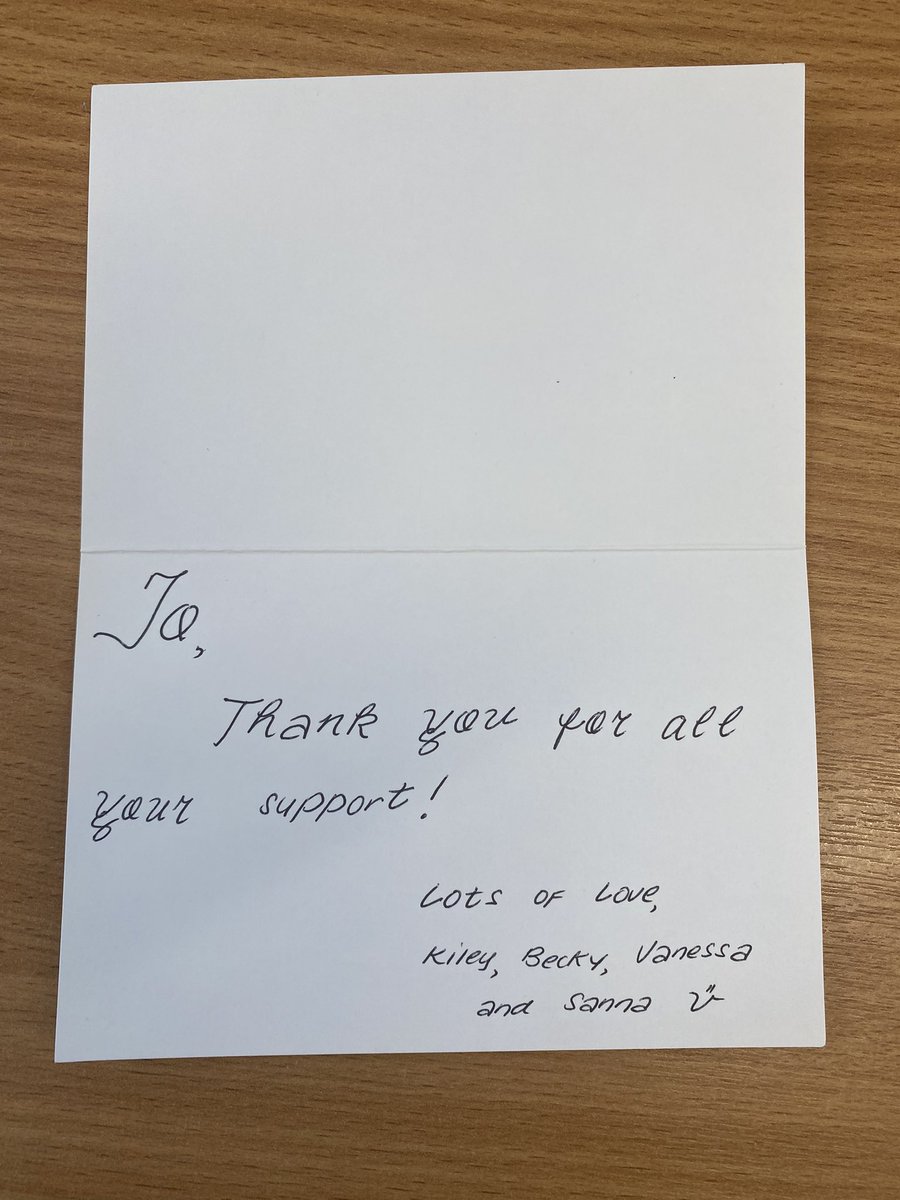 Jo,
Thank you for all
your support!
Lots of Love,
Kiley, Becky, Vanessa
and Sanna